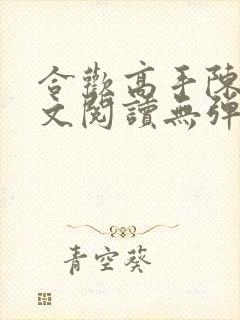 合歡高手陳
文閱讀無彈
青空葵